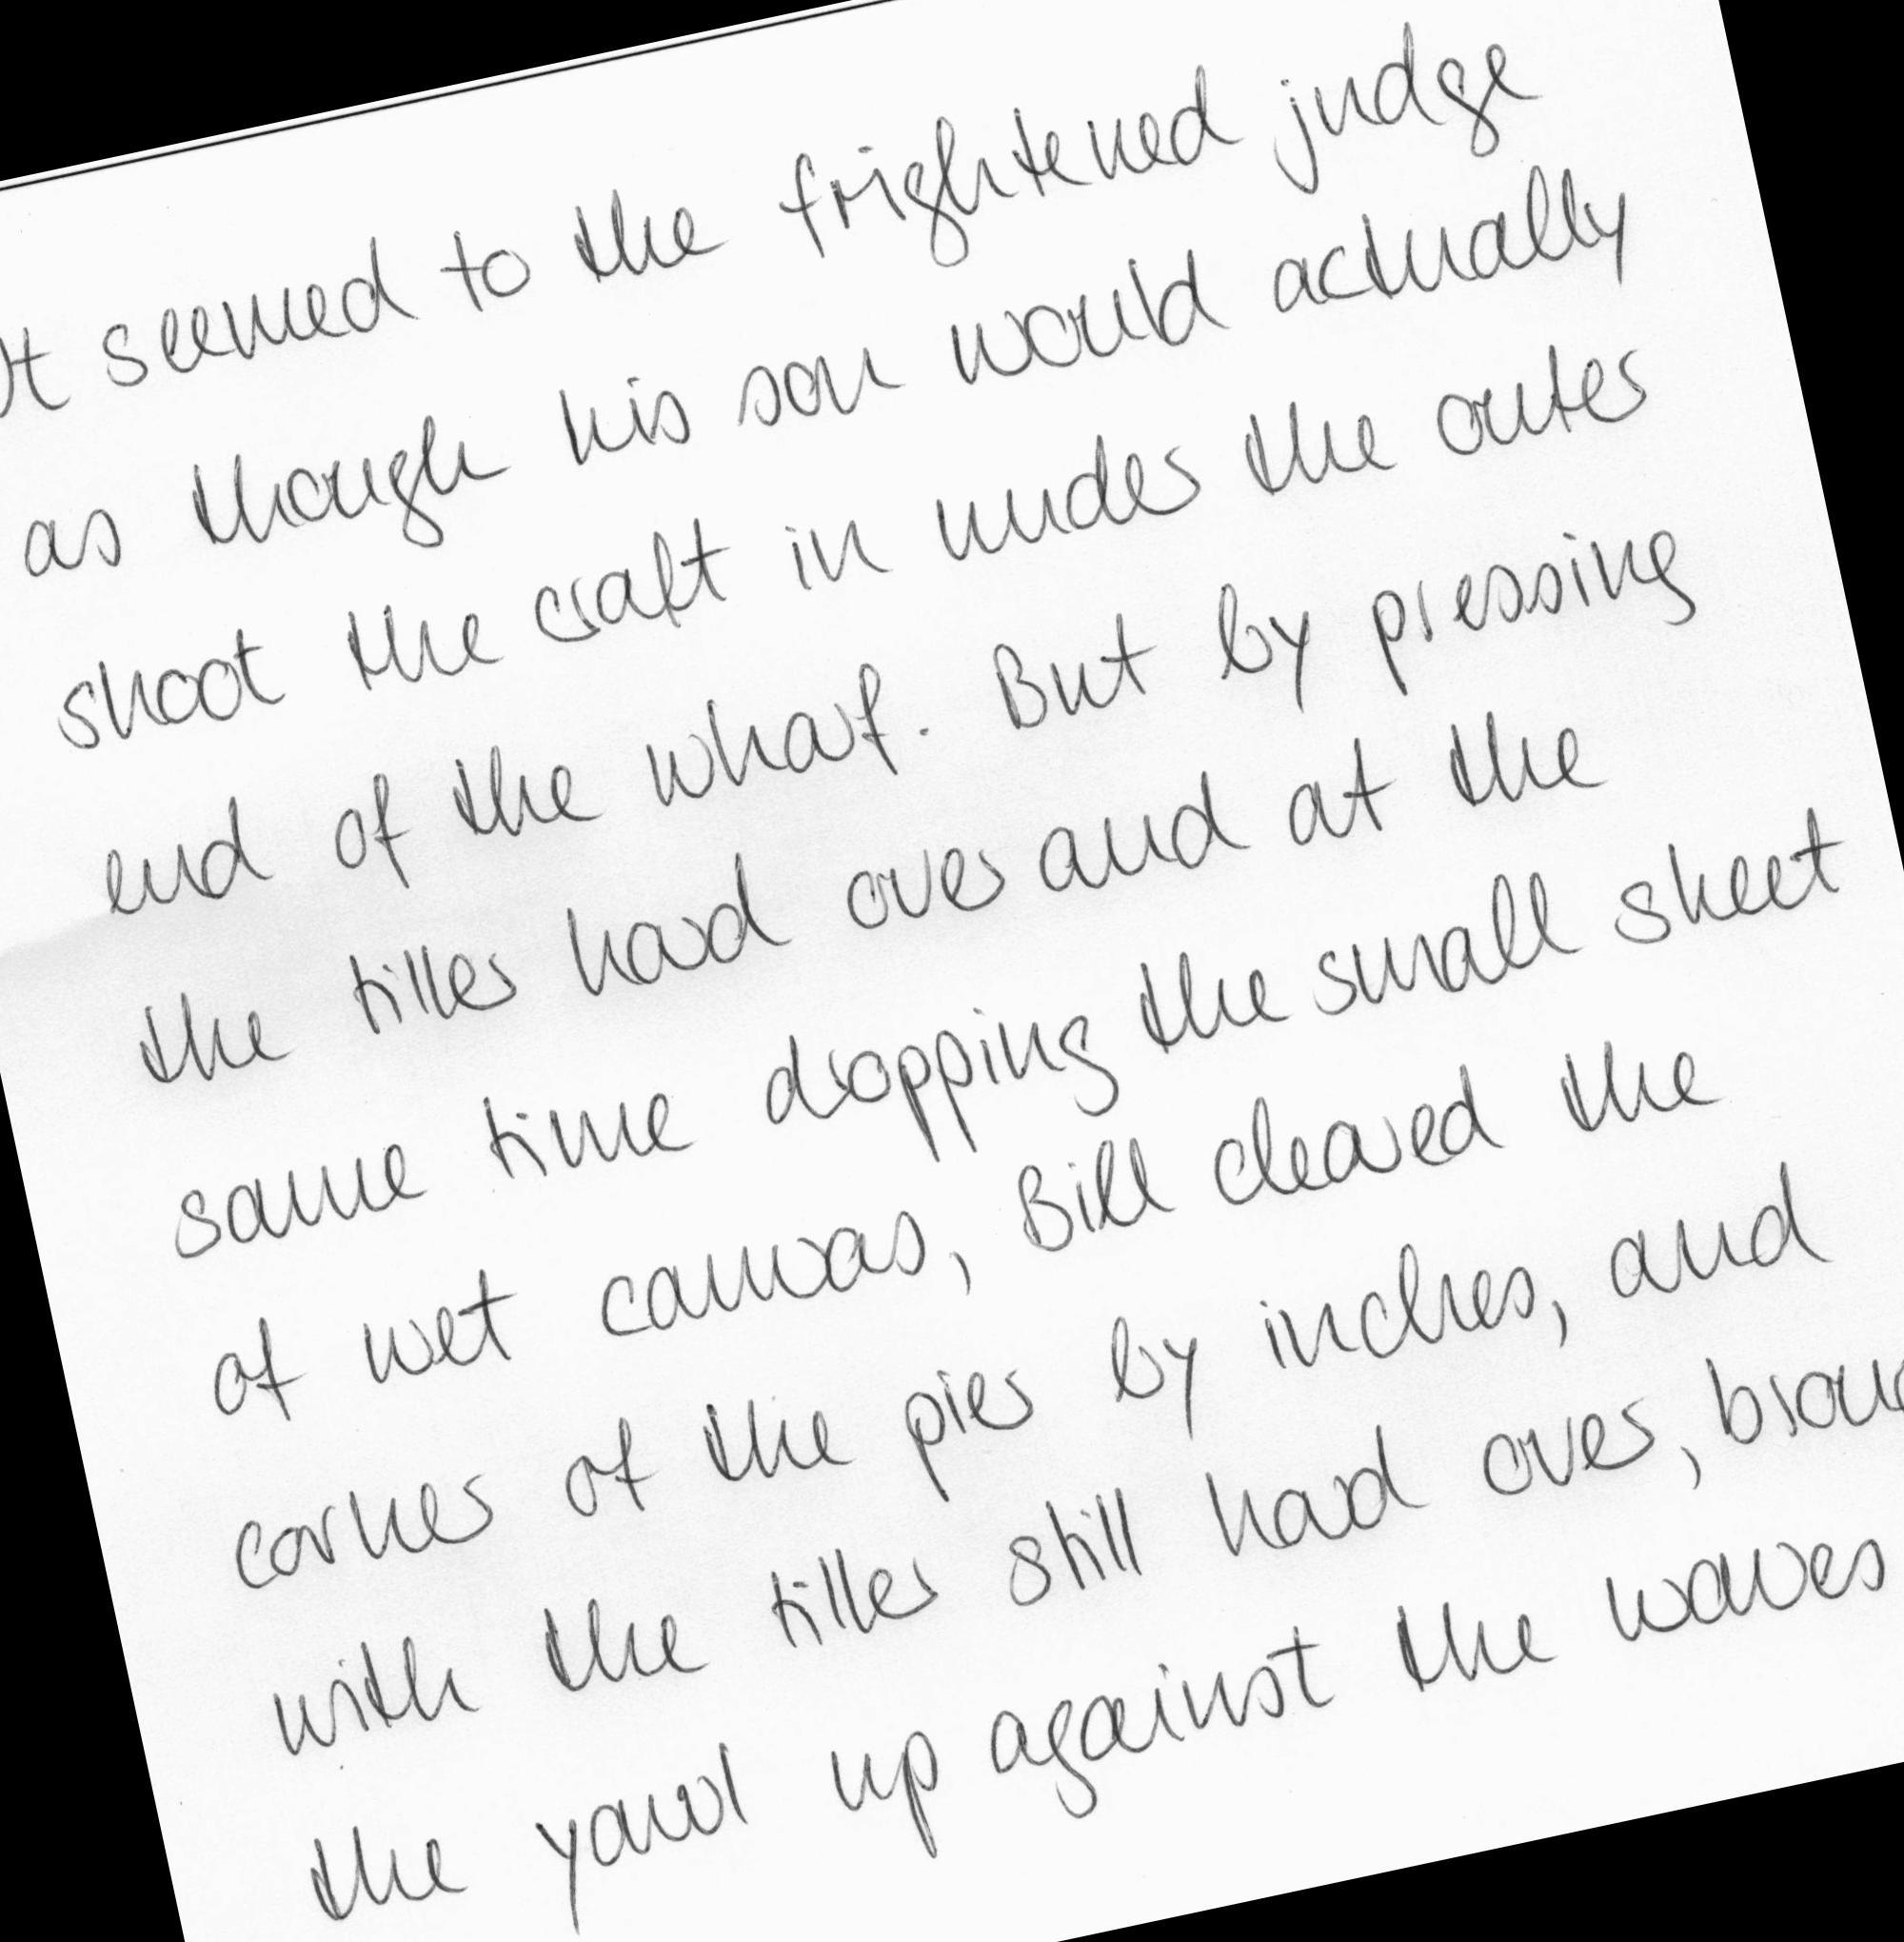 It seemed to the frightened judge
as though his son would actually
shoot the craft in under the outer
end of the wharf. But by pressing
the tiller hard over and at the
same time dropping the small sheet
of wet canvas, Bill cleared the
corner of the pier by inches, and
with the tiller still hard over,
the yawl up against the waves